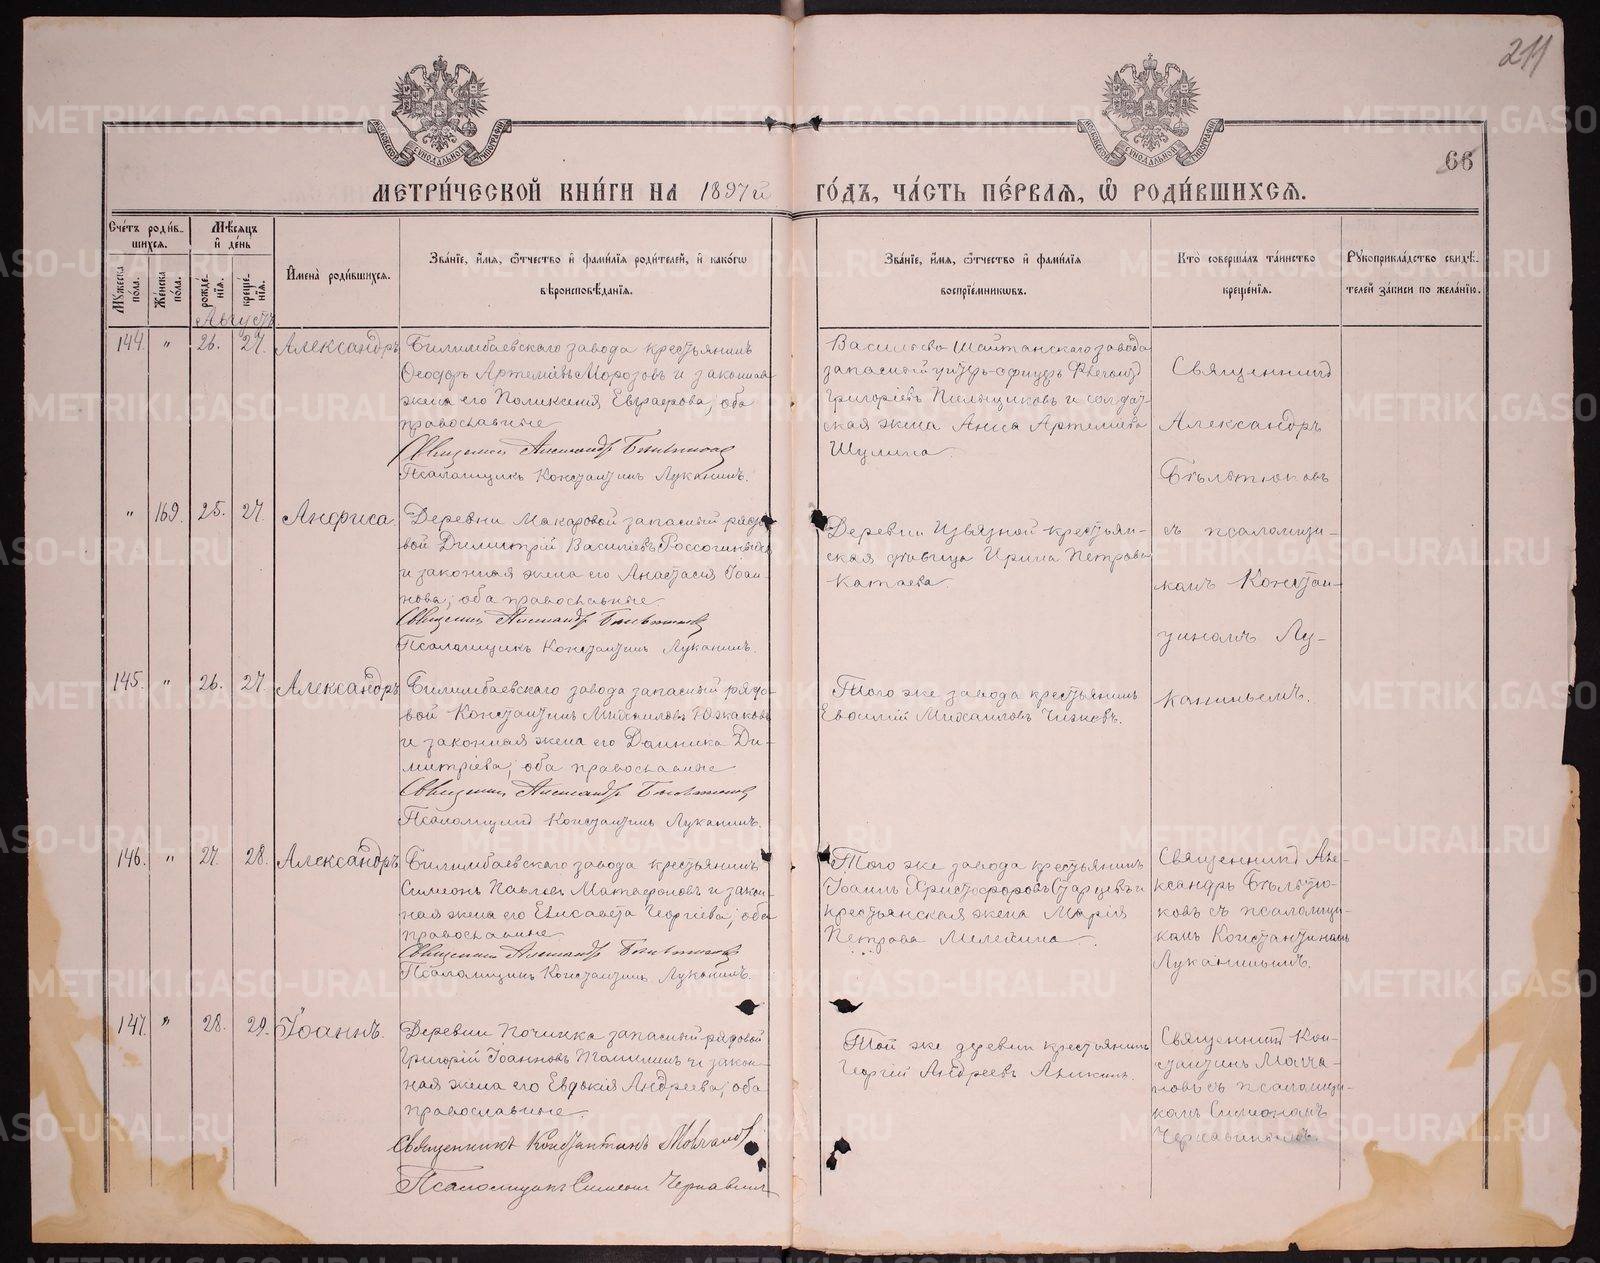 211
66
МЕТРИ́ЧЕСКОЙ КНИ́ГИ НА 1897й ГО́ДЪ, ЧА́СТЬ ПЕ́РВАЯ, Ѡ РОДИ́ВШИХСЯ.
Сче́тъ роди́в-
шихся.
Мѣ́сяцъ
и҆ де́нь
Му́жеска
по́ла.
Же́нска
по́ла.
рожде́-
нїя.
креще́-
нїя.
И҆мена̀ роди́вшихся.
Зва́нїе, и҆́мя, ѻ҆́тчество и҆ фами́лїя роди́телей, и҆ како́гѡ
вѣроисповѣ́данїя.
Зва́нїе, и҆́мя, ѻ҆́тчество и҆ фами́лїя
воспрїе́мникѡвъ.
Кто̀ соверша́лъ та́инство
креще́нїя.
Рꙋкоприкла́дство свидѣ́-
телей за́писи по жела́нїю.
Августъ
144. " 26. 27. Александръ
Билимбаевскаго завода крестьянинъ
Ѳеодоръ Артемьевъ Морозовъ и законная
жена его Поликсенія Евграфова; оба
православные
Священникъ Александръ Бѣльтюковъ
Псаломщикъ Константинъ Луканинъ.
Васильево-Шайтанскаго завода
запасный унтеръ-офицеръ
Григоріевъ Пильщиковъ и солдат-
ская жена Анна Артемьева
Шулина.
Священникъ
Александръ
Бѣльтюковъ
съ псаломщи-
комъ Констан-
тиномъ Лу-
канинымъ.
" 169. 25. 27. Анфиса.
Деревни Макаровой запасный рядо-
вой Димитрій Василіевъ
и законная жена его Анастасія Іоан-
нова; оба православные.
Священникъ Александръ Бѣльтюковъ
Псаломщикъ Константинъ Луканинъ.
Деревни Извязной крестьян-
ская дѣвица Ирина Петрова
Катаева.
145. " 26. 27. Александръ
Билимбаевскаго завода запасный рядо-
вой Константинъ Михаиловъ Южаковъ
и законная жена его Домника Ди-
митріева; оба православные
Священникъ Александръ Бѣльтюковъ
Псаломщикъ Константинъ Луканинъ.
Того же завода крестьянинъ
Евѳимій Михаиловъ Чижовъ.
146. " 27. 28. Александръ
Билимбаевскаго завода крестьянинъ
Симеонъ Павловъ Матафоновъ и закон-
ная жена его Елисавета Георгіева; оба
православные
Священникъ Александръ Бѣльтюковъ
Псаломщикъ Константинъ Луканинъ.
Того же завода крестьянинъ
Іоаннъ Христофоровъ Старцевъ и
крестьянская жена Марія
Петрова Мелехина.
Священникъ Але-
ксандръ Бѣльтю-
ковъ съ псаломщи-
комъ Константиномъ
Луканинымъ.
147. " 28. 29. Іоаннъ.
Деревни Починка запасный рядовой
Григорій Іоанновъ и закон-
ная жена его Евдокія Андреева; оба
православные.
Священникъ Константинъ Молчановъ
Псаломщикъ Симеонъ Чернавинъ
Той же деревни крестьянинъ
Георгій Андреевъ Аликинъ.
Священникъ Кон-
стантинъ Молча-
новъ съ псаломщи-
комъ Симеономъ
Чернавинымъ.